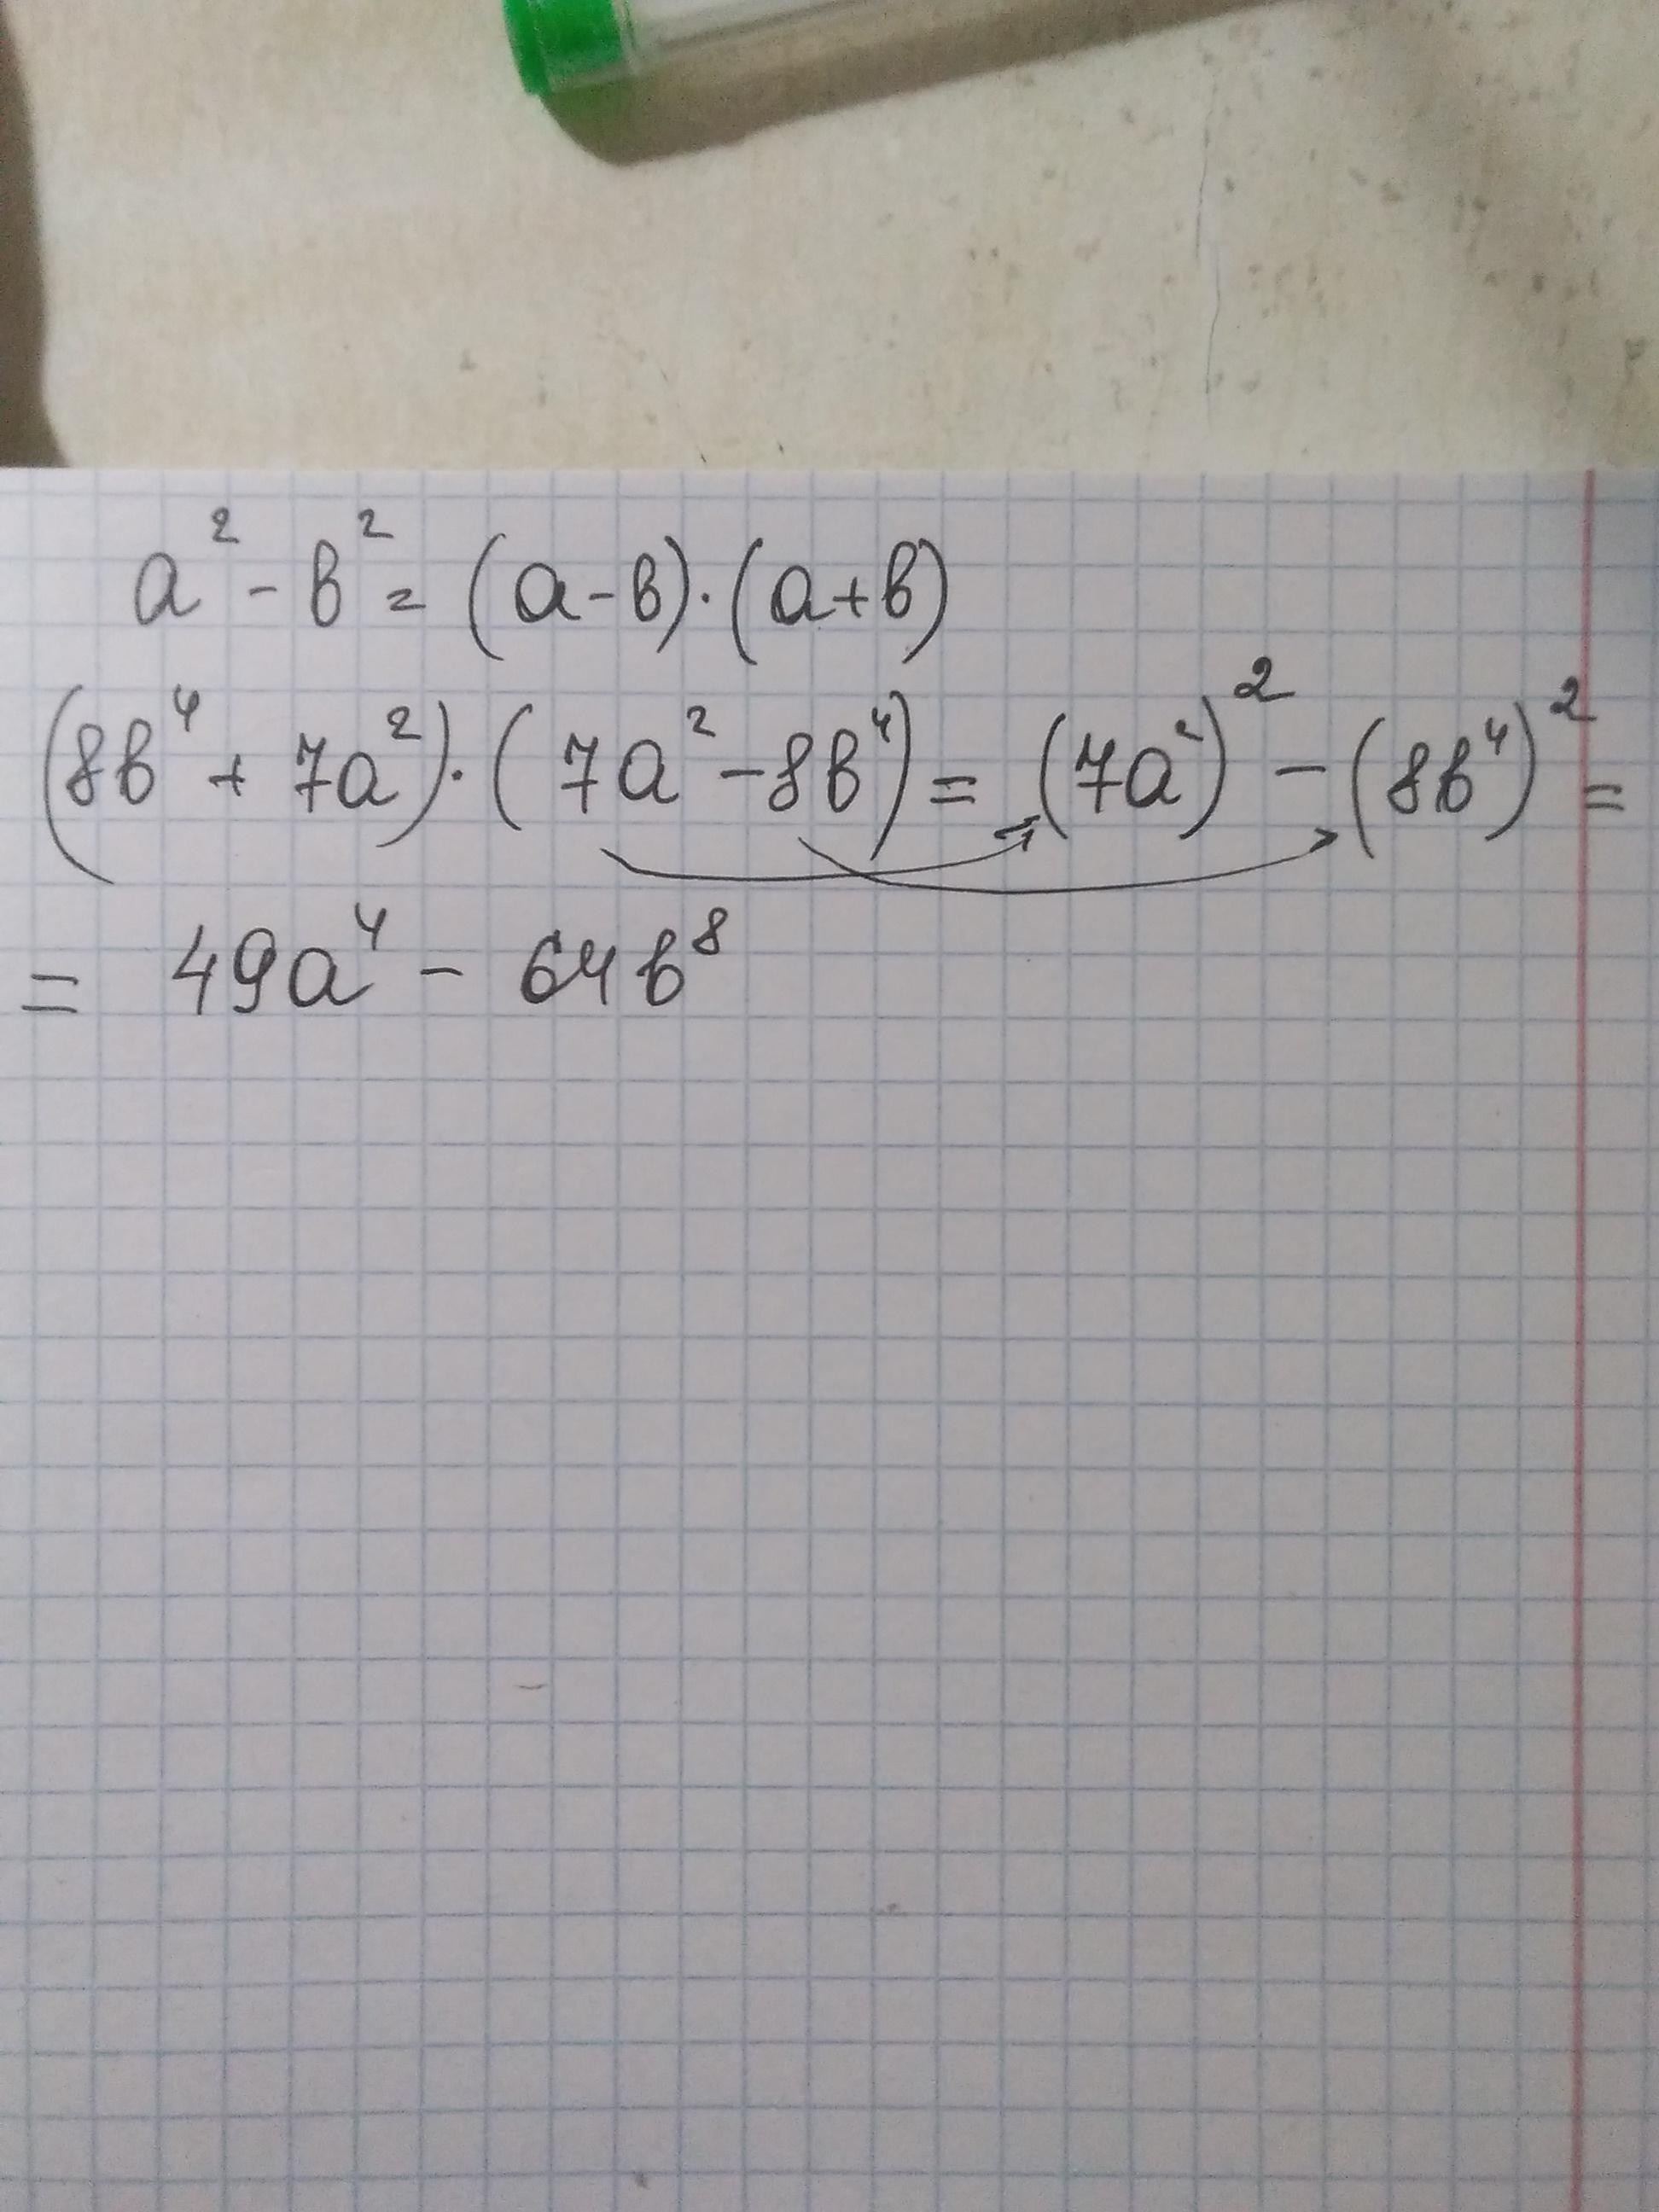 a² - в² = (a-в)·(a+в)
(8в⁴ + 7a²)·(7a² - 8в⁴) = (7a²)² - (8в⁴)² =
= 49a⁴ - 64в⁸